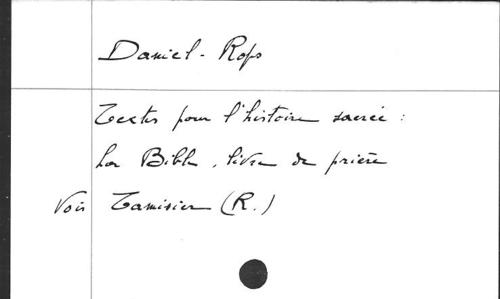 Daniel-Rops
Textes pour l'histoire sacrée :
La Bible, livre de prière
Voir Tamisier (R.)